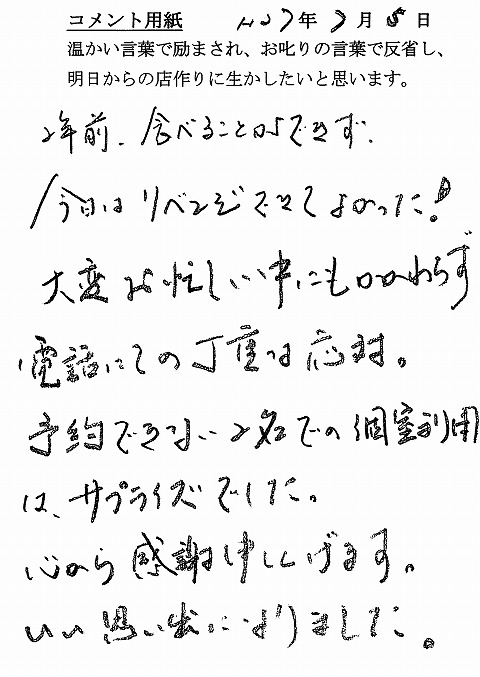 コメント用紙 H27年7月5日
温かい言葉で励まされ、お叱りの言葉で反省し、
明日からの店作りに生かしたいと思います。
2年前、食べることができず、
今日はリベンジできてよかった!
大変お忙しい中にもかかわらず
電話にての丁重な応対。
予約できない2名での個室利用
は、サプライズでした。
心から感謝申し上げます。
いい思い出になりました。